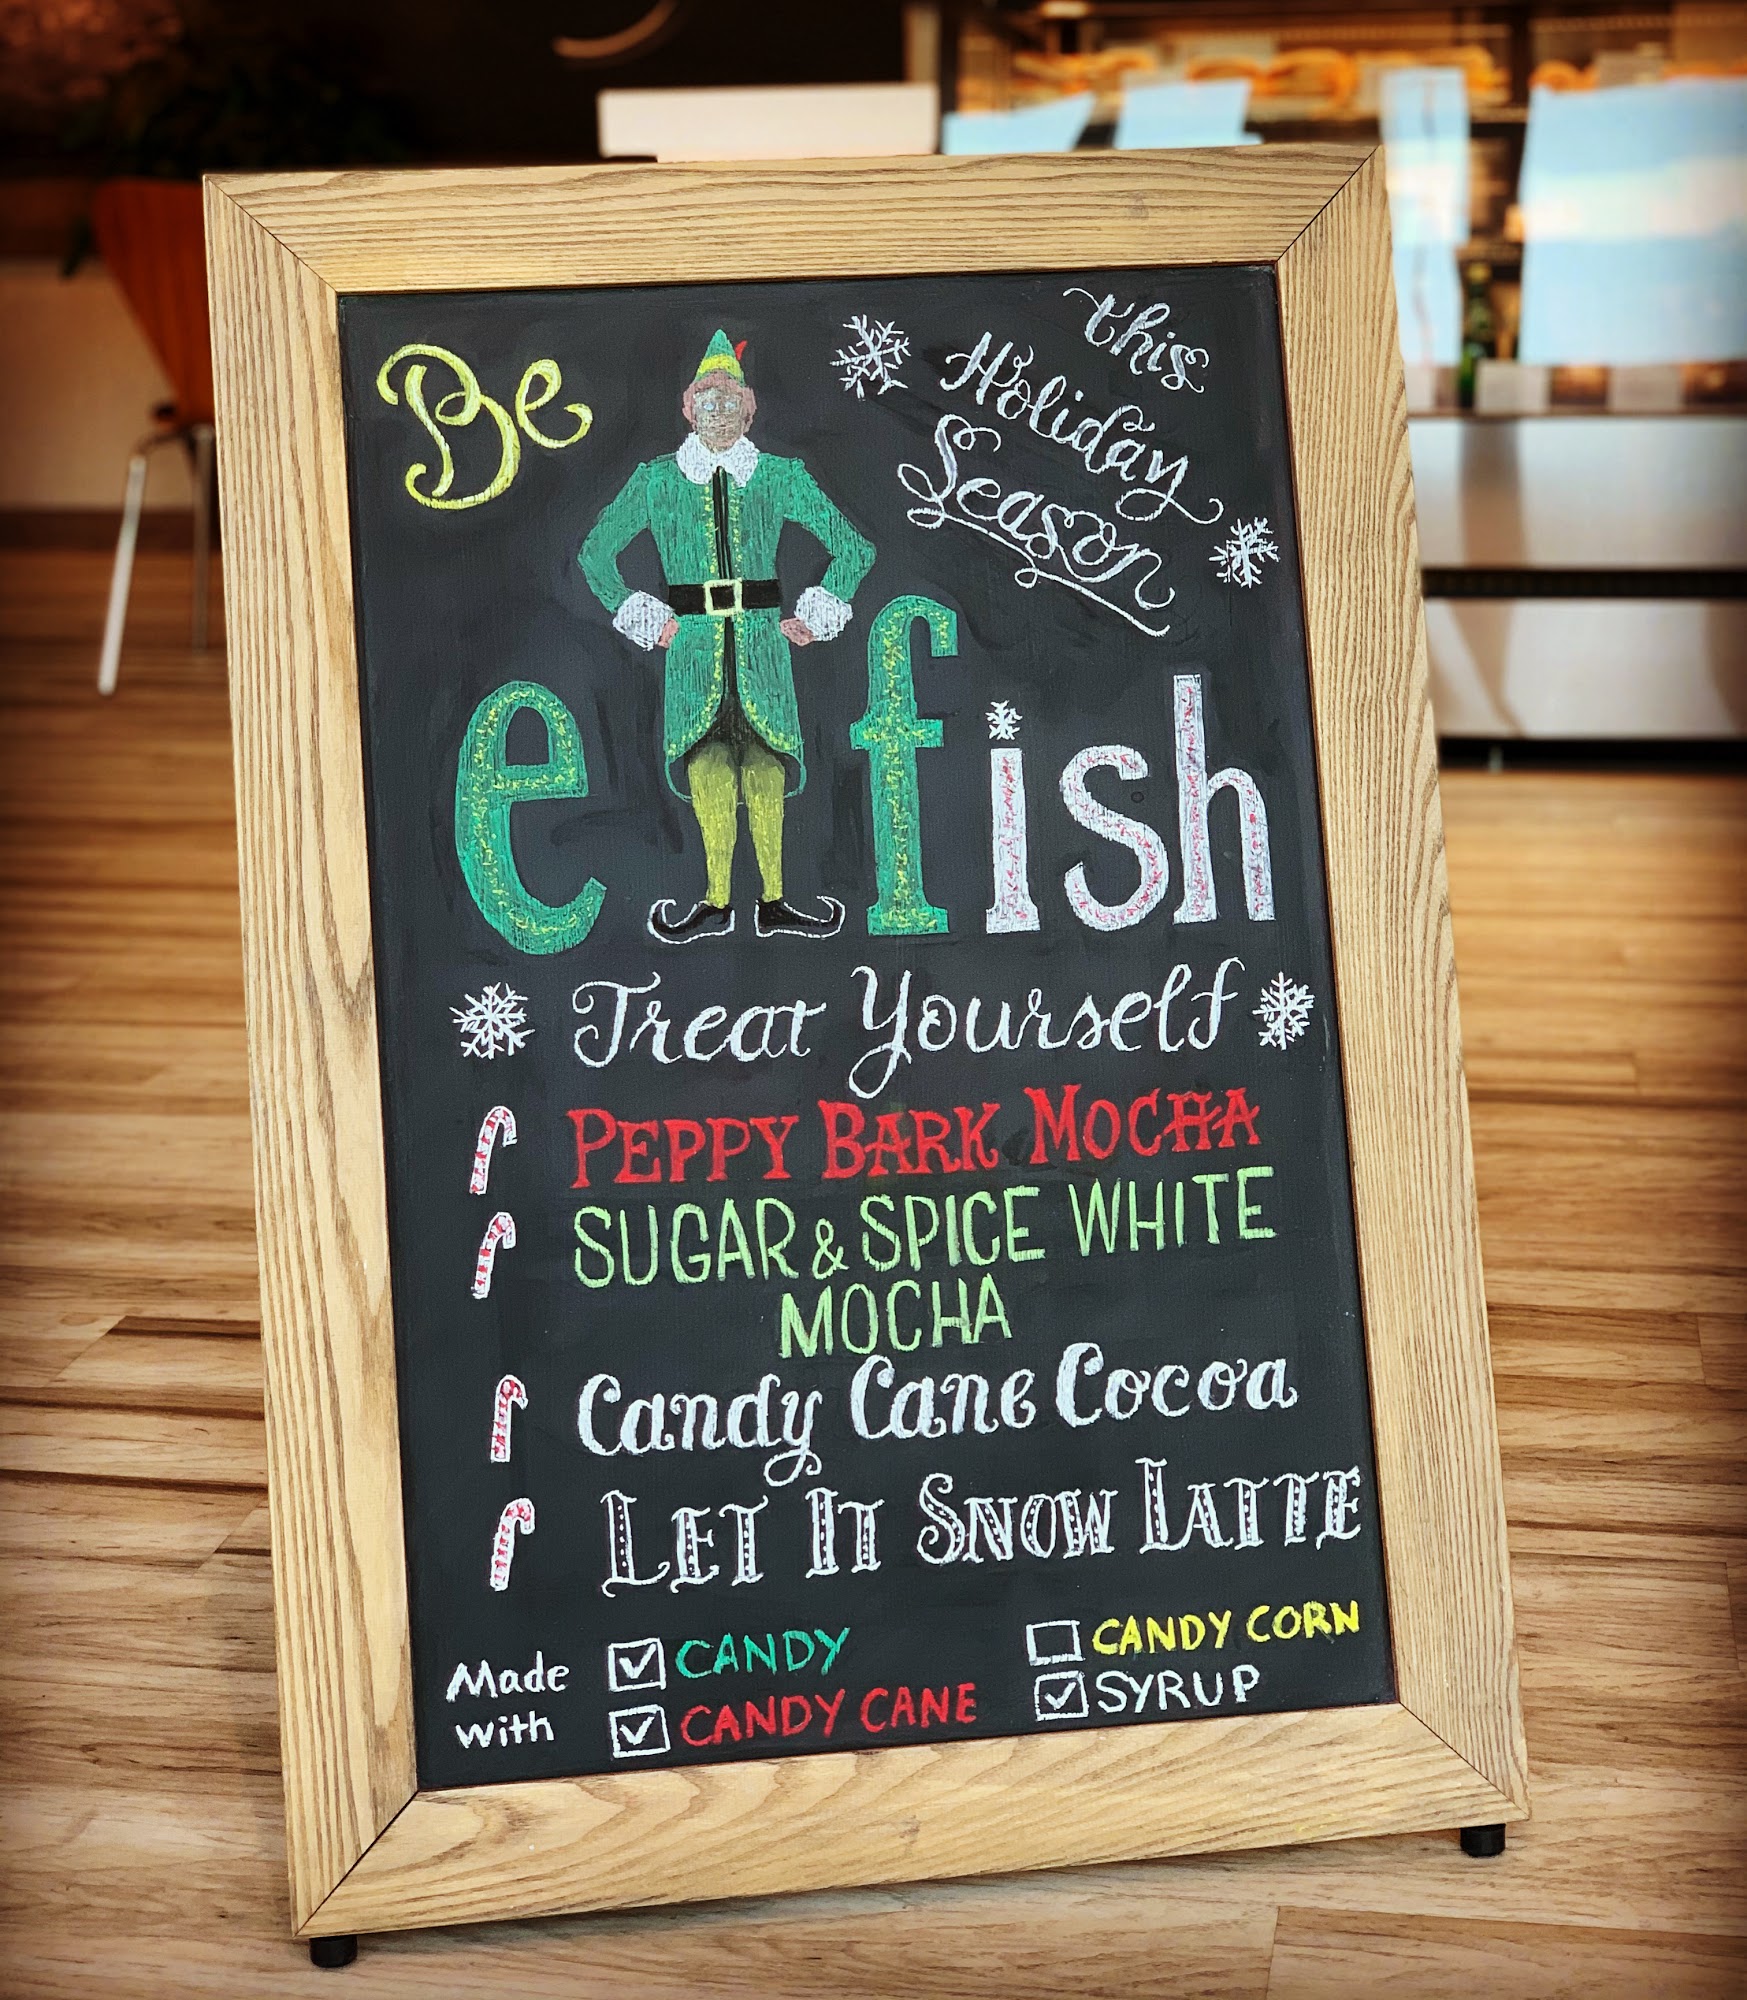 Be
this
Holiday
Season
elfish
Treat Yourself
PEPPY BARK MOCHA
SUGAR & SPICE WHITE
MOCHA
Candy Cane Cocoa
LET IT SNOW LATTE
Made
with
CANDY
CANDY CANE
CANDY CORN
SYRUP